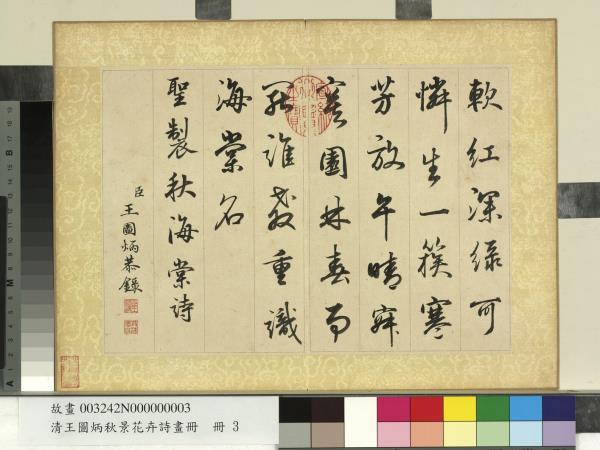 軟紅深綠可
憐生一簇寒
芳放午晴寂
寞園林春雨
罷誰教重識
海棠名
聖製秋海棠詩
臣王圖炳恭錄
故畫 003242N000000003
清王圖炳秋景花卉詩畫冊　冊 3